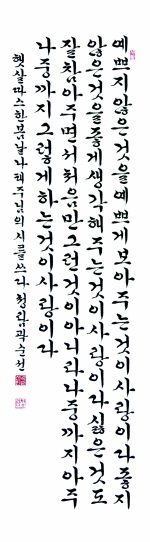 예쁘지않은것을예쁘게보아주는것이사랑이다좋지
않은것을좋게생각해주는것이사랑이다싫은것도
잘참아주면서처음만그런것이아니라나중까지아주
나중까지그렇게하는것이사랑이다
햇살따스한봄날나태주님의시를쓰다 청람곽순선